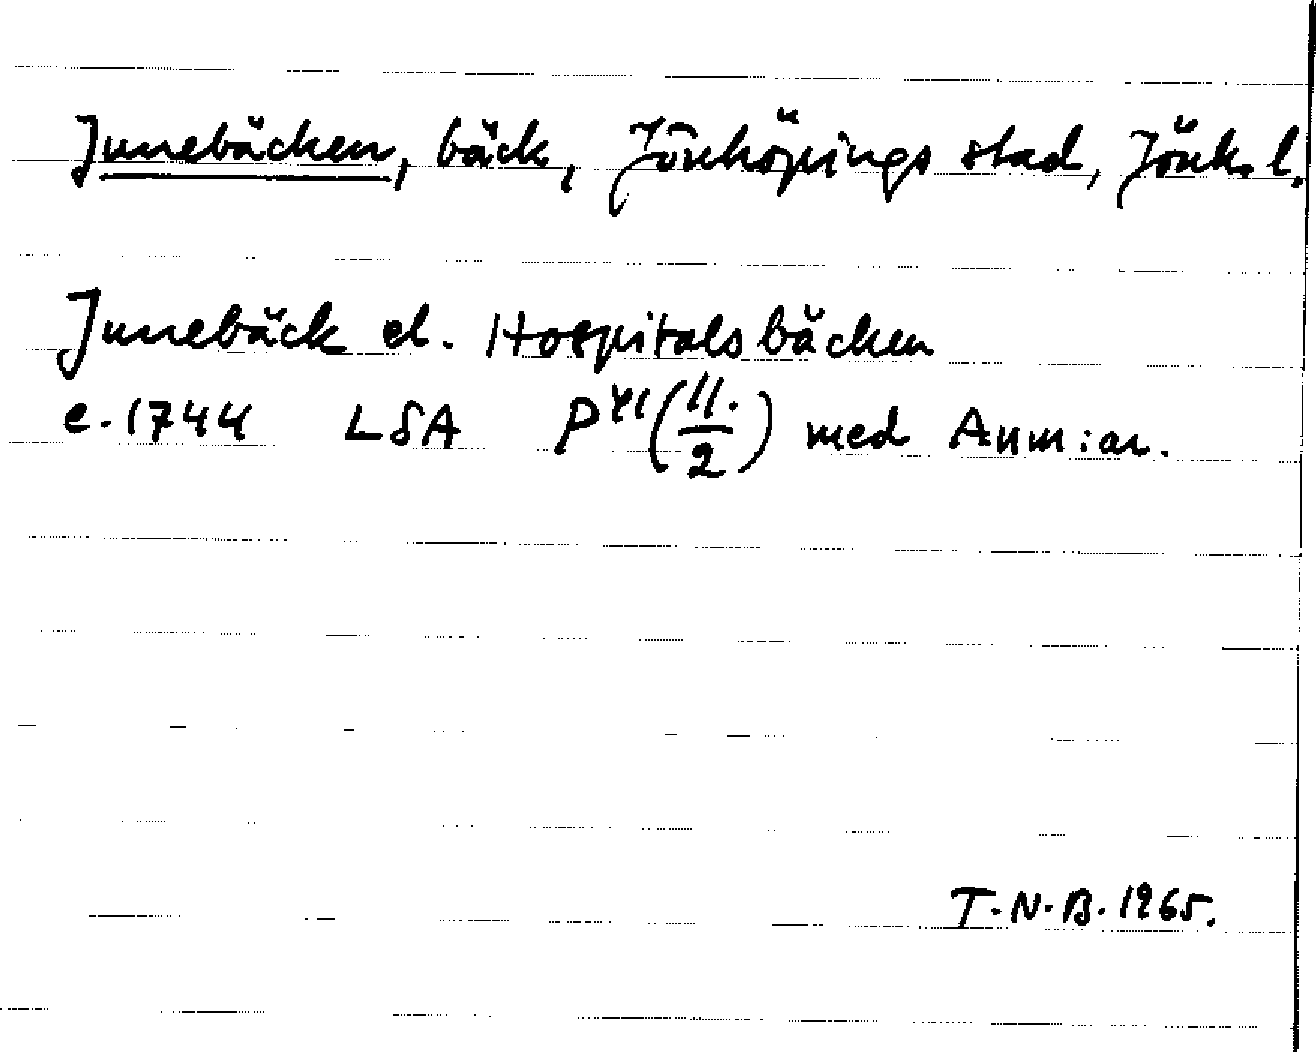 Junebäcken, bäck, Jönköpings stad, Jönk. l.
Junebäck el. Hospitalsbäcken
c. 1744 LSA P (11./2) med Anm:ar.
T.N.B. 1965.